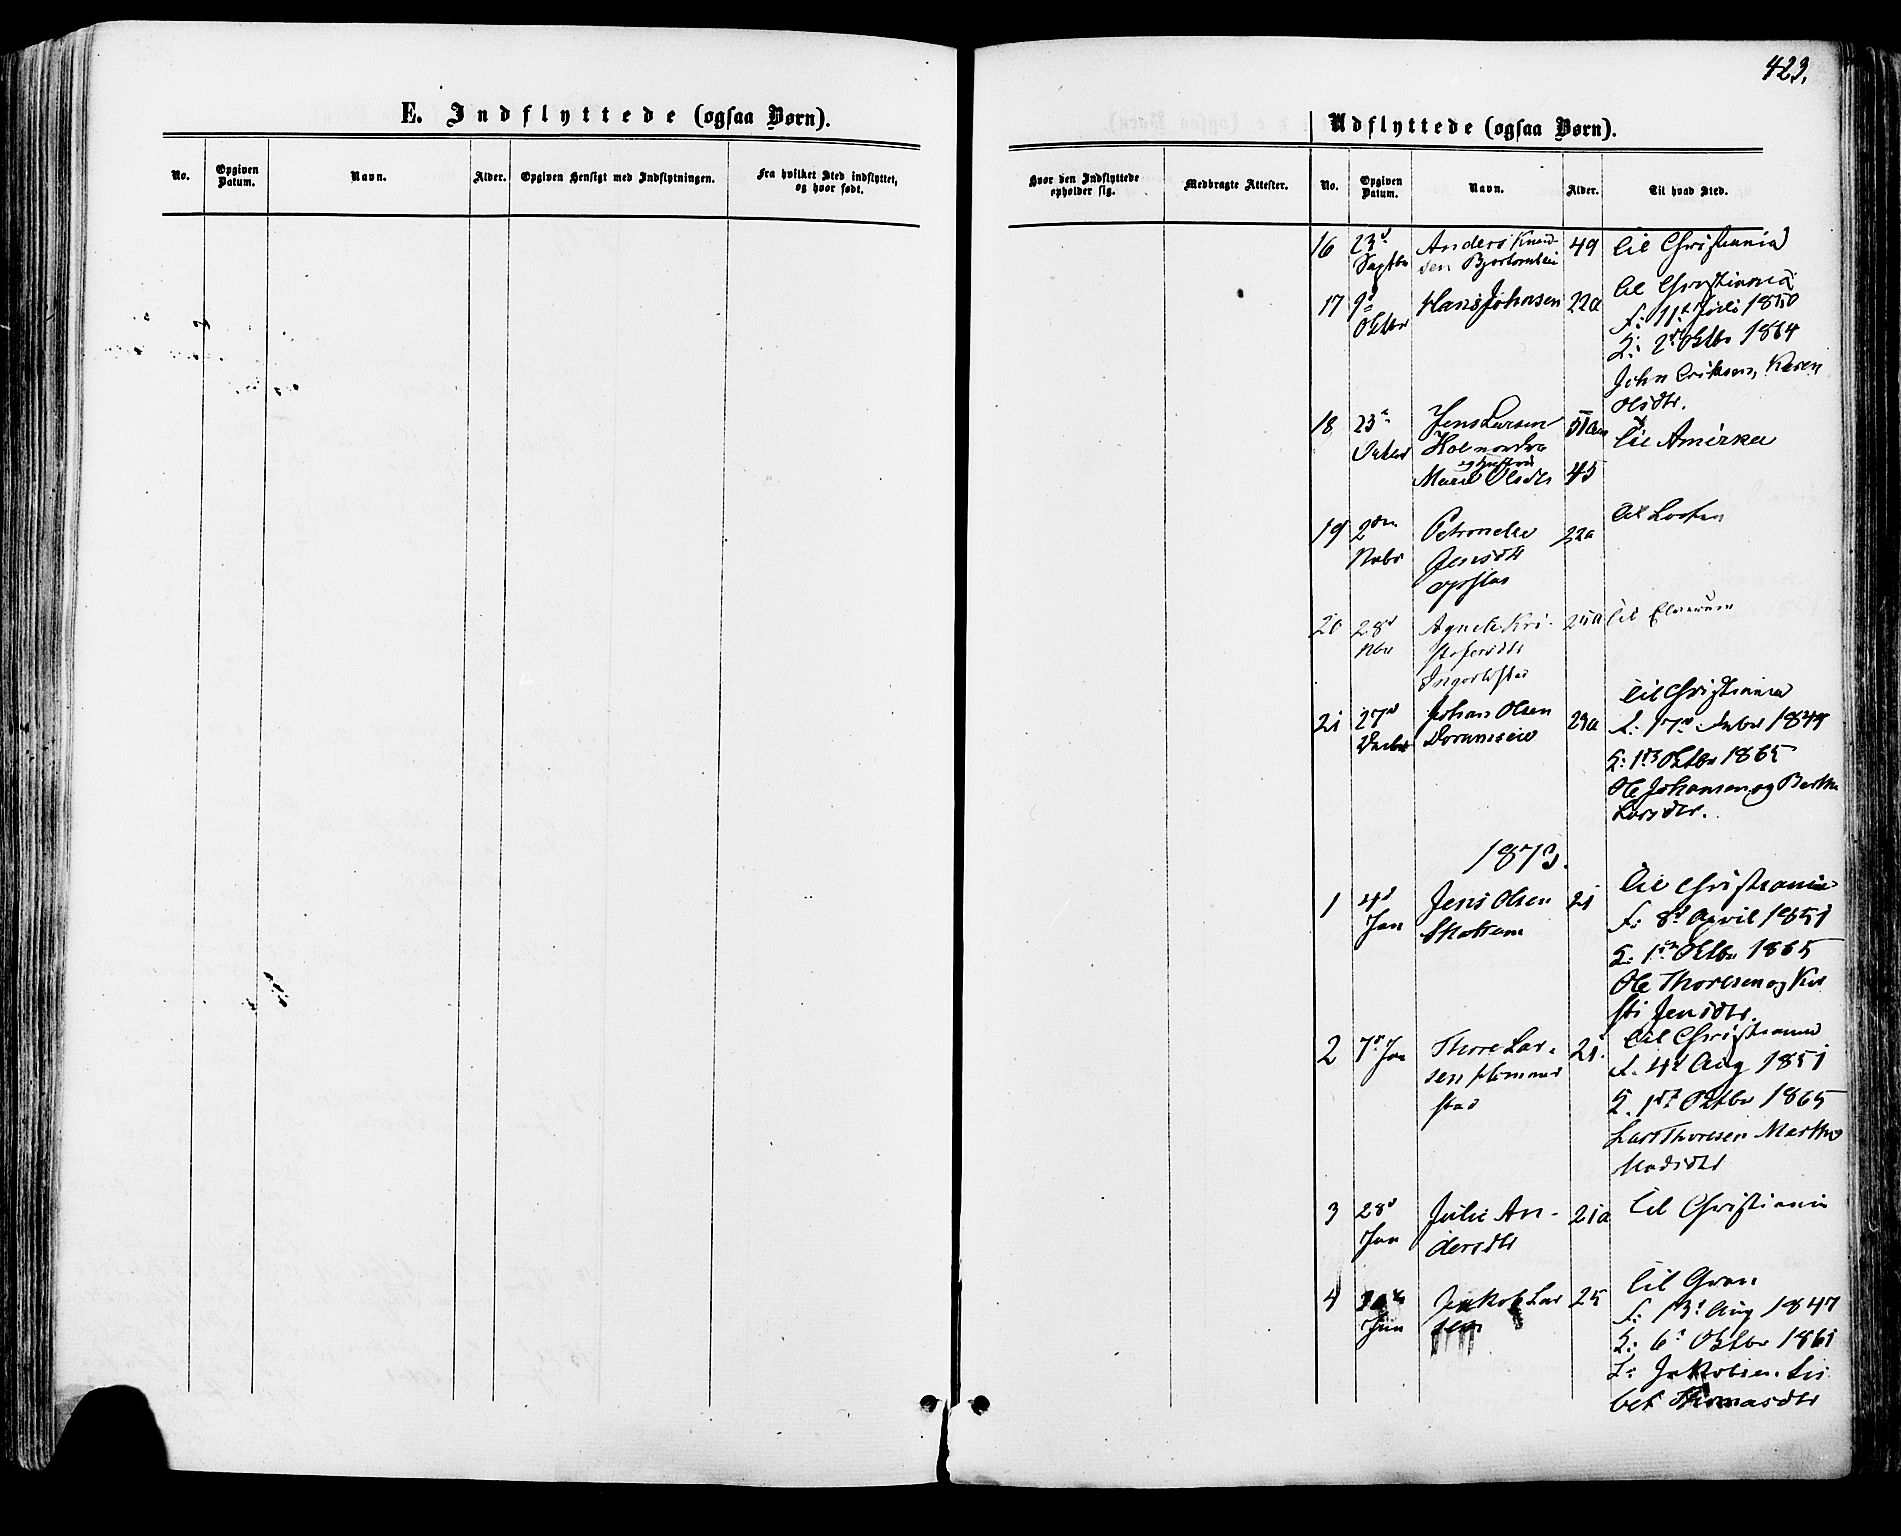 423.
E. Indflyttede (ogsaa Børn).
No.
Opgiven Datum.
Navn.
Alder.
Opgiven Hensigt med Indflytningen.
Fra hvilket Sted indflyttet, og hvor født.
Hvor den Indflyttede opholder sig.
Medbragte Attester.
Udflyttede (ogsaa Børn).
No.
Opgiven Datum.
Navn.
Alder.
Til hvad Sted.
16 23d Septbr Anders Knud-
sen 49 til Christiania
17 9d Oktbr Hans Johnsen 22a til Christiania
f: 11t Juli 1850
2d Oktbr 1864
John Eriksen, Karen
Olsdtr.
18 23d Jens Larsen
og hustru
Marie Olsdtr 45
til Amerika
19 2den Novbr Petronelle
Jensdtr
Opstad 22a til Løiten
20 28d Nbr Agnete Kri-
stofersdtr
Ingvoldstad til Elverum
21 27d Decbr Johan Olsen 23a til Christiania
f: 17d
1ste Oktbr 1865
Ole Johansen og Berthe
Larsdtr.
1873.
1 4d Jan Jens Olsen
Skattum 21 til Christiania
f: 8d April 1851
1ste Oktbr 1865
Ole Thoresen og Ker
sti Jensdtr.
2 7d Jan Thore Lar-
sen Hommer
stad 21 til Christiania
f. 4d Aug 1851
1ste Oktbr 1865
Lars Thoresen Marthe
Madsdtr
3 28d Jan Julie An-
dersdtr 21a til Christiania
4 Jan Jakob Lar
sen 25 til Gran
f: 13d Aug 1847
6d Oktbr 1861
L: Jakobsen. Lis
bet Thomasdtr